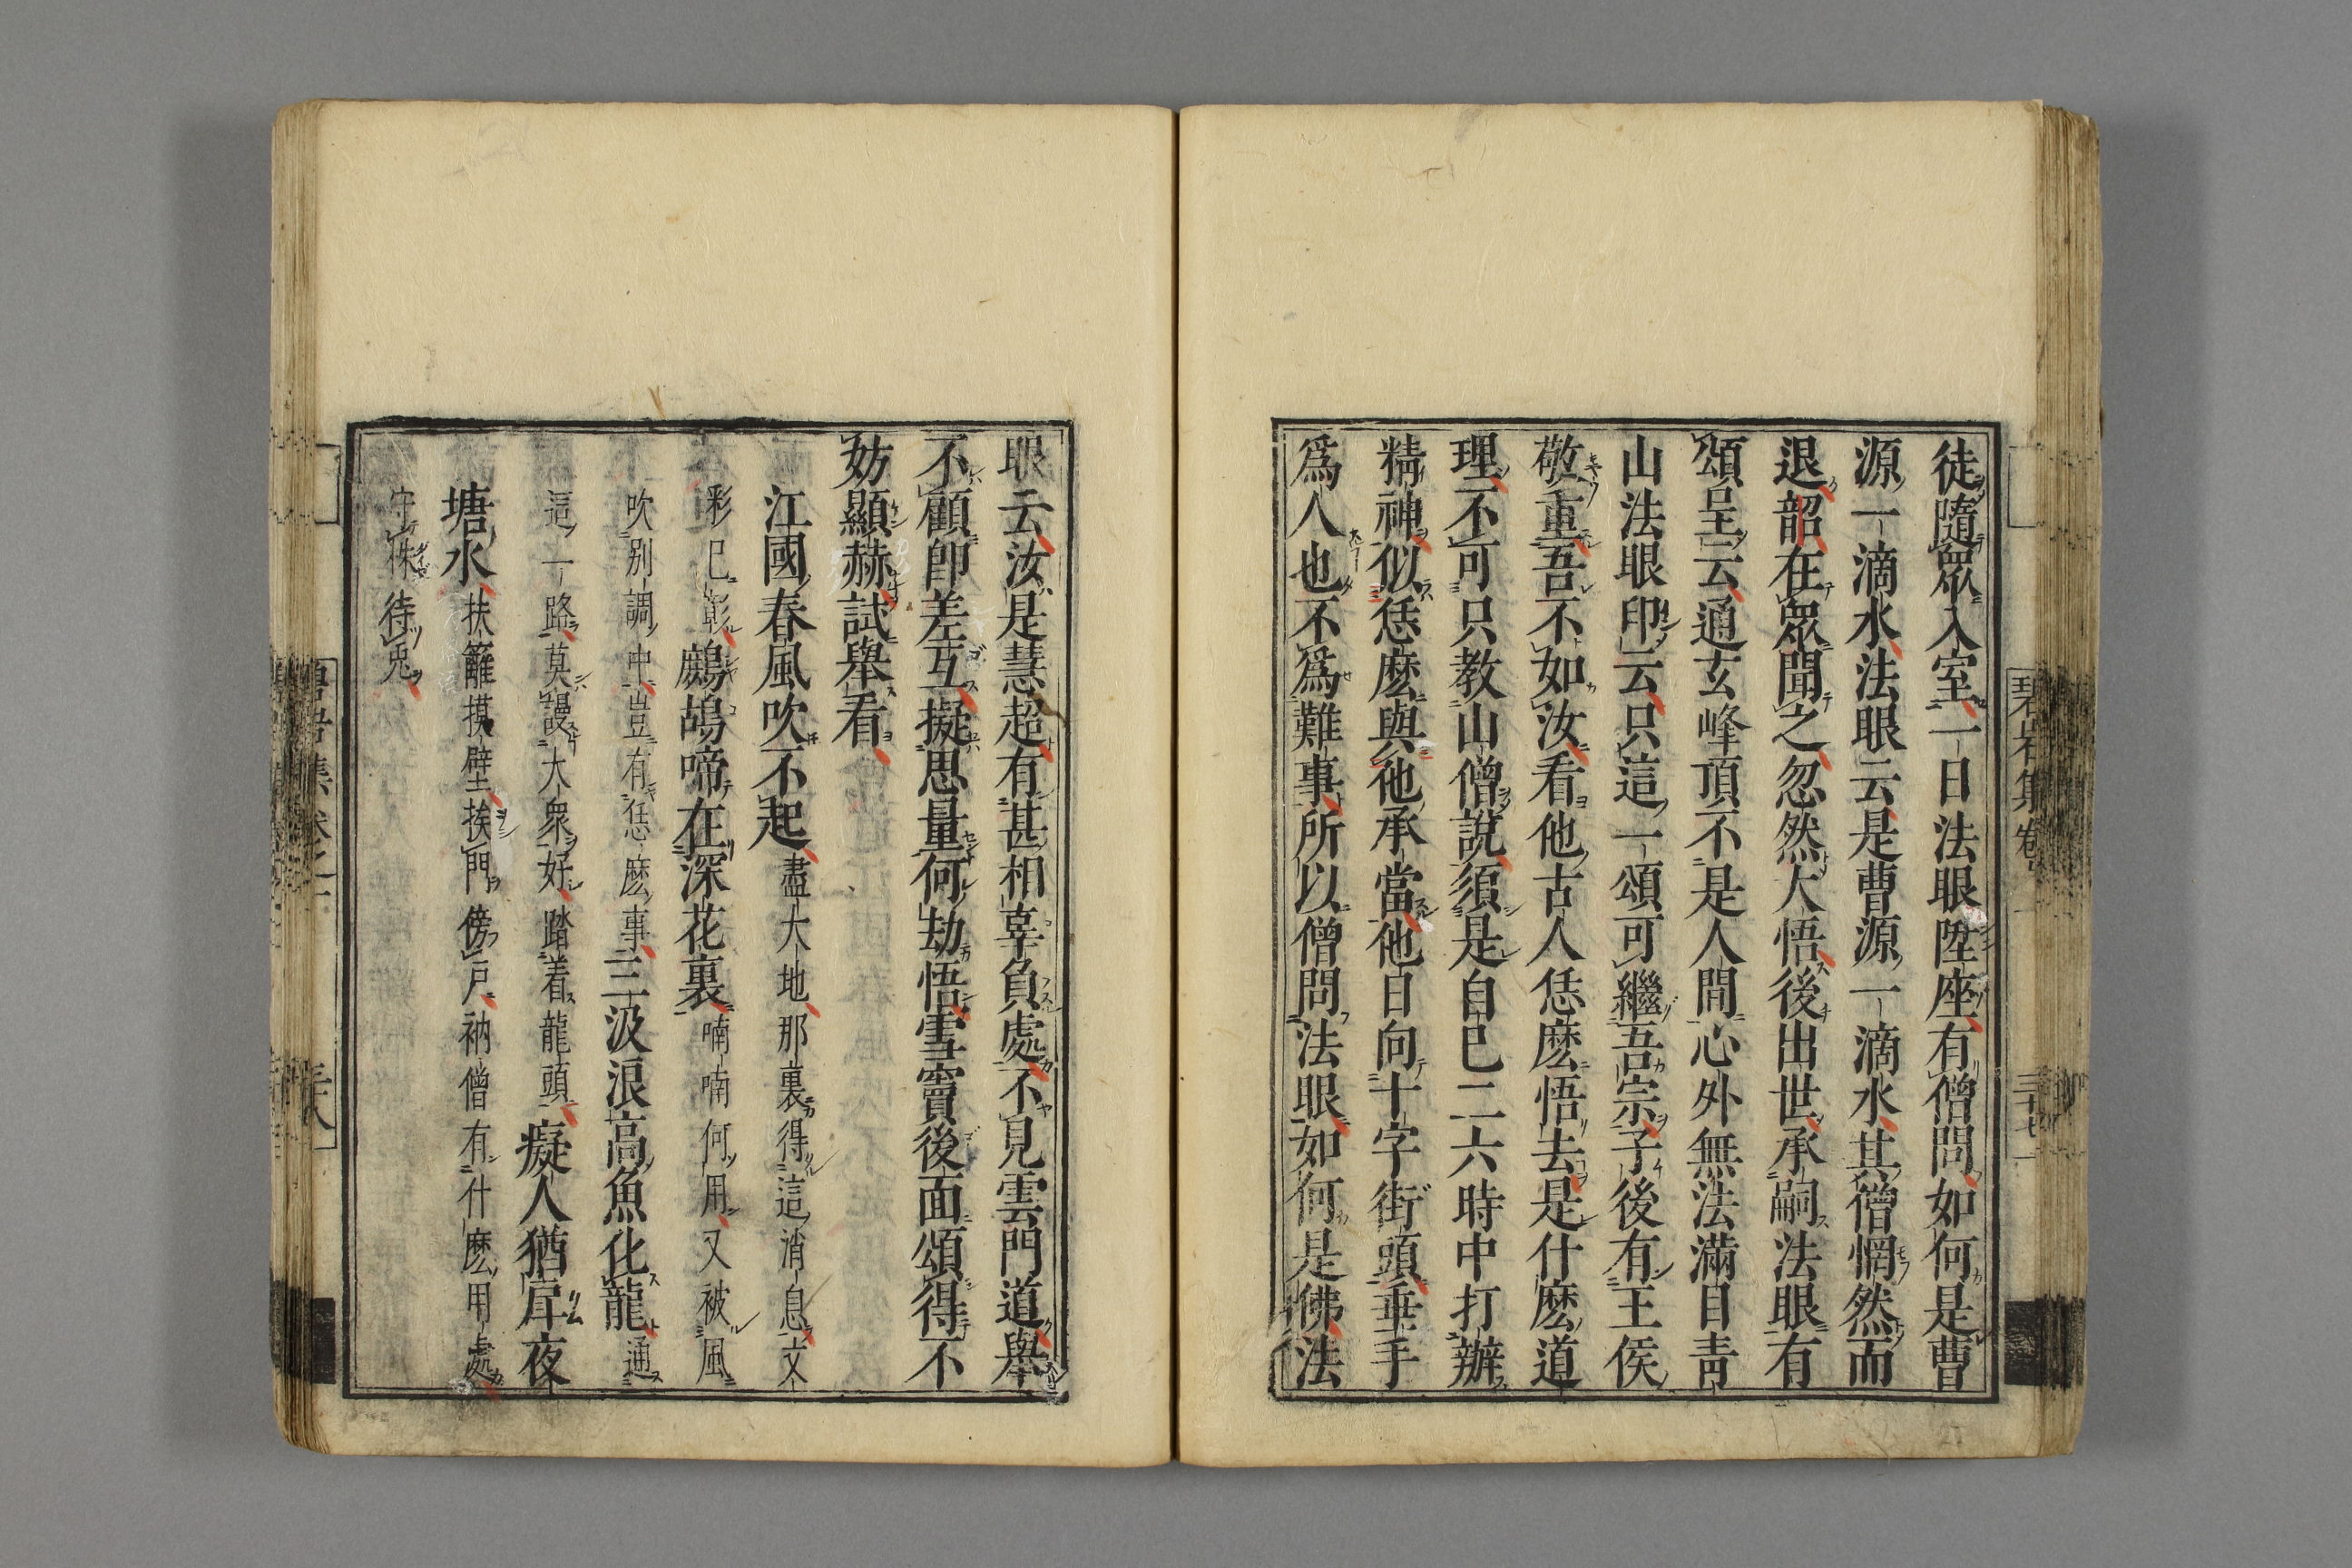 徒隨衆入室一日法眼陞座有僧問如何是曹
源一滴水法眼云是曹源一滴水其僧惘然而
退韶在衆聞之忽然大悟後出世承嗣法眼有
頌呈云通玄峰頂不是人間心外無法滿目青
山法眼印云只這一頌可繼吾宗子後有王侯
敬重吾不如汝看他古人恁麽悟去是什麽道
理不可只教山僧說須是自己二六時中打辦
精神似恁麽與他承當他日向十字街頭垂手
爲人也不爲難事所以僧問法眼如何是佛法
眼云汝是慧超有甚相辜負處不見雲門道舉
不顧卽差互擬思量何劫悟雪竇後面頌得不
妨顯赫試舉看
江國春風吹不起盡大地那裏得這消息文
彩已彰鷓鴣啼在深花裏喃喃何用又被風
吹别調中豈有恁麽事三汲浪高魚化龍通
這一路莫謾大衆好踏着龍頭癡人猶戽夜
塘水扶籬摸壁挨門傍戶衲僧有什麽用處
守株待兎
碧岩集卷一